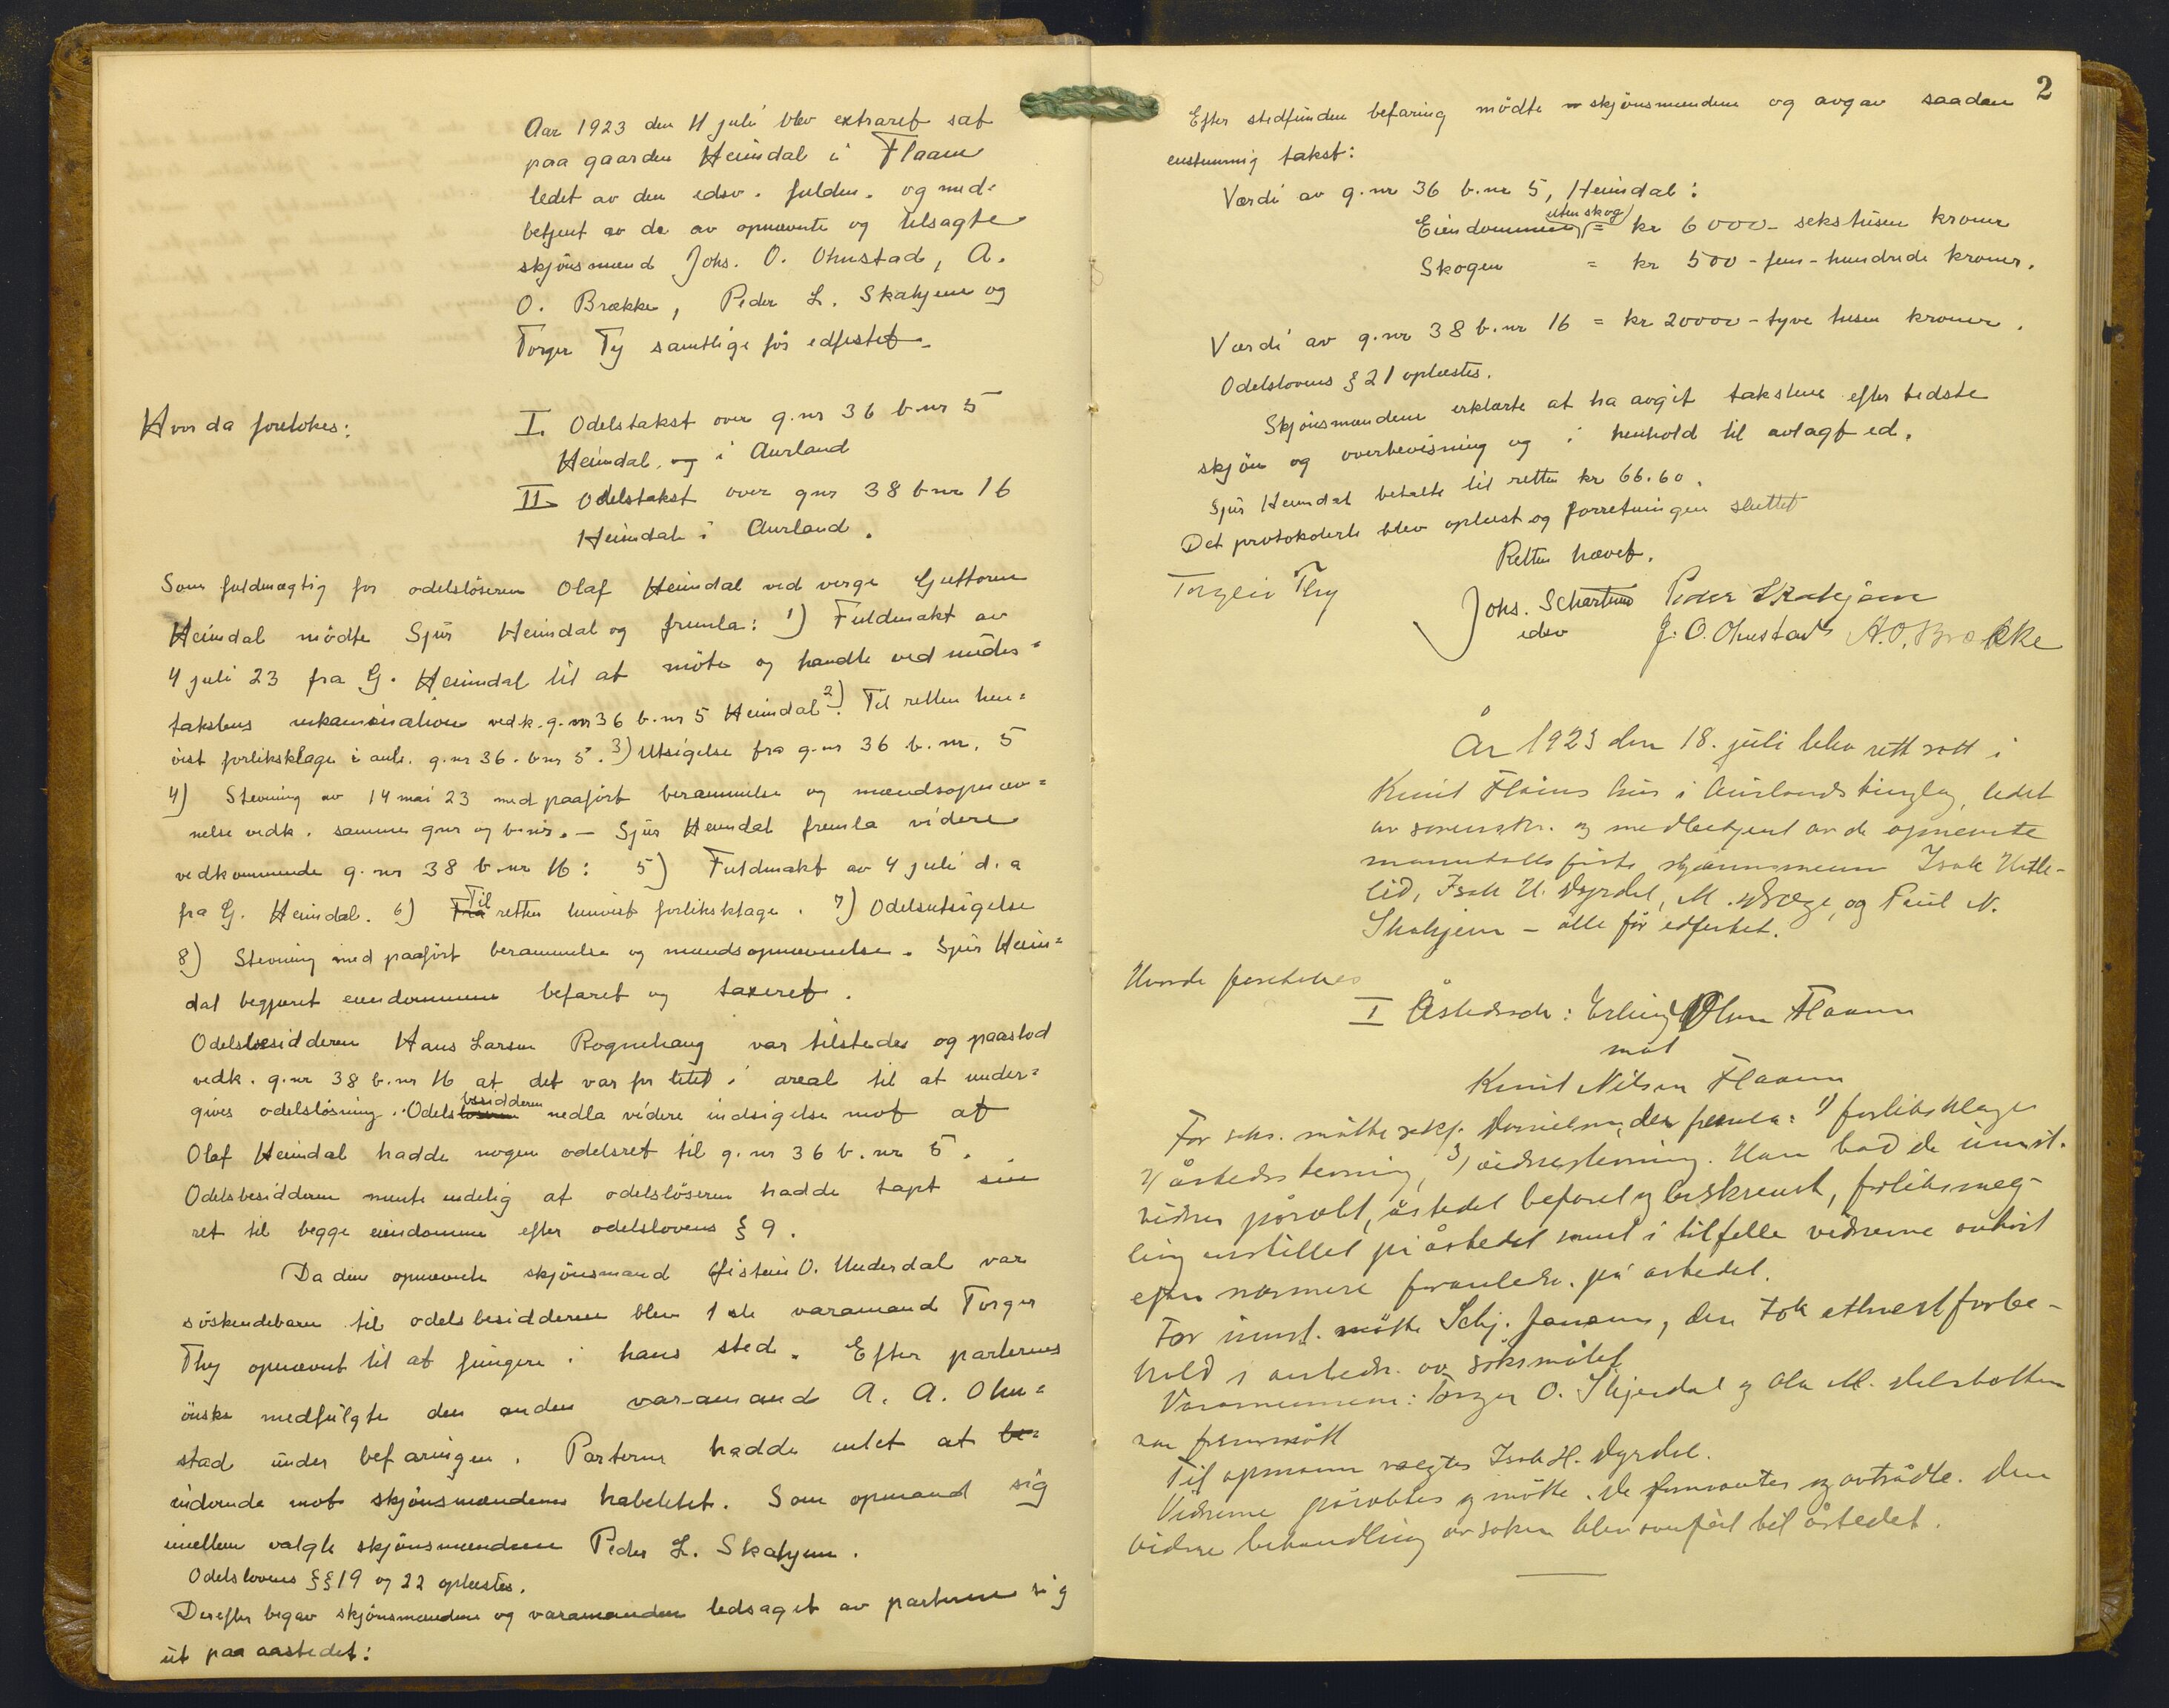 Aar 1923 den 11 juli blev extraret sat
paa gaarden Heimdal i Flaam
ledet av den edsv. fuldm. og med-
betjent av de av opnævnte og tilsagte
skjönsmænd Johs. O. Ohnstad, A.
O. Brække, Peder L. Skahjem og
Torger Ty samtlige för edfestet.
Hvor da foretokes:
I. Odelstakst over g.nr 36 b.nr 5
Heimdal, og i Aurland
II. Odelstakst over gnr 38 bnr 16
Heimdal i Aurland.
Som fuldmægtig for odelslöseren Olaf Heimdal ved verge Guttorm
Heimdal mödte Sjur Heimdal og fremla: 1) Fuldmakt av
4 juli 23 fra G. Heimdal til at möte og handle ved under=
takstens vedk. g.nr 36 b.nr 5 Heimdal 2). Til retten hen=
vist forliksklage i anl. g.nr 36. bnr 5. 3) Utsigelse fra g.nr 36 b.nr. 5
4) Stevning av 14 mai 23 med paafört berammelse og mændsopnæv=
nelse vedk. samme gnr og b.nr. — Sjur Heimdal fremla videre
vedkommende g.nr 38 b.nr 16: 5) Fuldmakt av 4 juli d.a
fra G. Heimdal. 6) Fra Til retten henvist forliksklage. 7) Odelsutsigelse
8) Stevning med paafört berammelse og mændsopnævnelse. Sjur Heim=
dal begjæret eiendommene befaret og taxeret.
Odelsbesidderen Hans Larsen Rognehaug var tilstede og paastod
vedk. g.nr 38 b.nr 16 at det var for litet i areal til at under=
gives odelslösning. Odelslöseren besidderen nedla videre indsigelse mot at
Olaf Heimdal hadde nogen odelsret til g.nr 36 b.nr 5.
Odelsbesidderen mente endelig at odelslöseren hadde tapt sin
ret til begge eiendomme efter odelslovens § 9.
Da den opnævnte skjönsmand Öistein O. Underdal var
söskendebarn til odelsbesidderen blev 1ste varamand Torger
Thy opnævnt til at fungere i hans sted. Efter parternes
önske medfulgte den anden varamand A. A. Ohn=
stad under befaringen. Parterne hadde intet at be-
indvende mot skjönsmændenes habilitet. Som opmand sig
imellem valgte skjönsmændene Peder L. Skahjem.
Odelslovens §§ 19 og 22 oplæstes.
Derefter begav skjönsmændene og varamanden ledsaget av parterne sig
ut paa aastedet:
2
Efter stedfunden befaring mödte skjönsmændene og avgav saadan
enstemmig takst:
Værdi av g.nr 36 b.nr 5, Heimdal:
Eiendommen (uten skog) = kr 6000 - sekstusen kroner
Skogen = kr 500 - fem-hundrede kroner.
Værdi av g.nr 38 b.nr 16 = kr 20000 - tyve tusen kroner.
Odelslovens § 21 oplæstes.
Skjönsmændene erklærte at ha avgit takstene efter bedste
skjön og overbevisning og i henhold til avlagt ed.
Sjur Heimdal betalte til retten kr 66.60.
Det protokolerte blev oplæst og forretningen sluttet
Retten hævet.
Torgeir Thy
Johs. Schartum Peder Skahjem
edsv J. O. Ohnstad A. O. Brække
År 1923 den 18. juli blev rett satt i
Knut Flåms hus i Aurlands tinglag, ledet
av sorenskr. og medbetjent av de opnevnte
manntallsförte skjønnsmenn Isak Hetle-
lid, Isak H. Dyrdal, M. og Paul N.
Skahjem - alle før edfestet.
Hvorda foretokes
I Åstedssak: Erling Olsen Flaam
mot
Knut Nilsen Flaam
For saks. møtte sakf. Danielsen, der fremla: 1) forliksklage
2) åstedsstevning, 3) vidnestevning. Han bad de innst.
vidner påropt, åstedet befaret og beskrevet, forliksmeg-
ling anstillet på åstedet samt i tilfelle vidnerne avhört
efter nærmere foranledn. på åstedet.
For innst. møtte Schj. Jansen, der tok ethvert forbe-
hold i anledn. av søksmålet
Varamennene: Torger O. Skjerdal og Ola M.
var fremmøtt
Til opmann valgtes Isak H. Dyrdal.
Vidnerne påroptes og møtte. De formantes og avtrådte. Den
videre behandling av saken blev overført til åstedet.